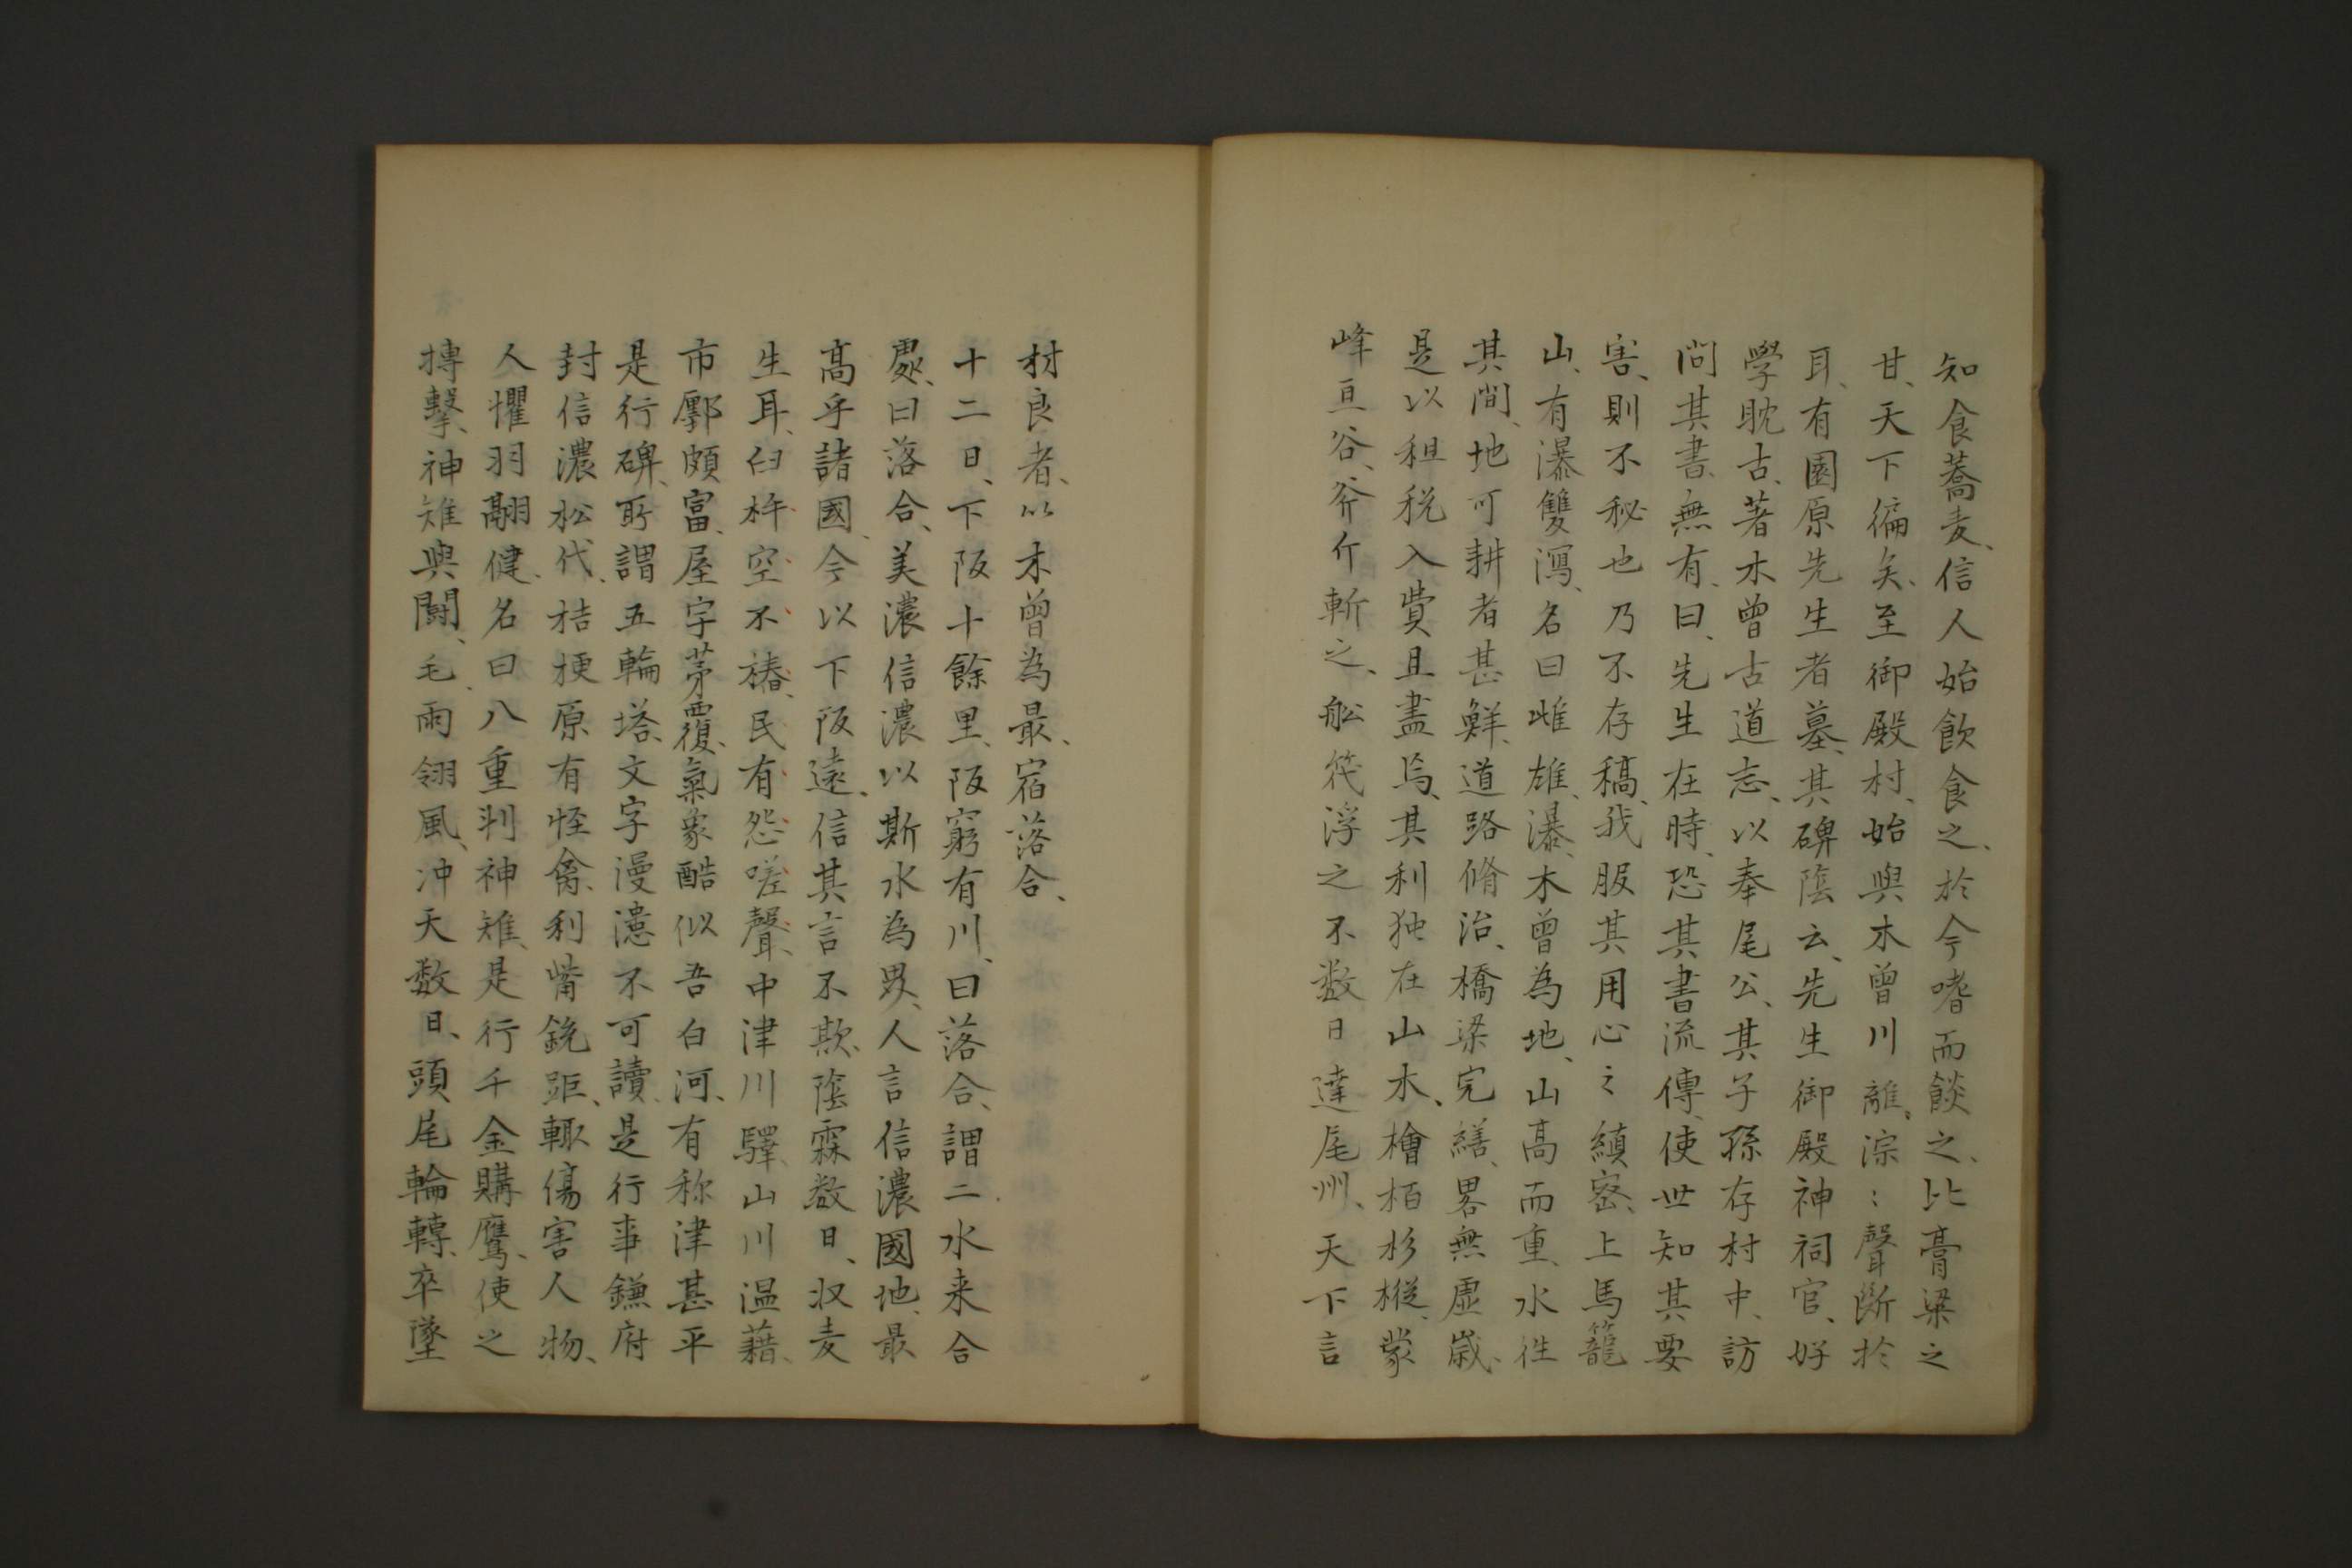 知食蕎麦、信人始飲食之、於今嗜而餤之、比膏粱之
甘、天下徧矣、至御殿村、始與木曾川離、淙〻聲断於
耳、有園原先生者墓、其碑陰云、先生御殿神祠官、好
學耽古、著木曾古道志、以奉尾公、其子孫存村中、訪
問其書、無有、曰、先生在時、恐其書流傳、使世知其要
害、則不秘也乃不存稿、我服其用心之縝密、上馬籠
山、有瀑雙瀉、名曰雌雄瀑、木曾為地、山高而重、水徃
其間、地可耕者甚鮮、道路脩治、橋梁完繕、畧無虚歳、
是以租税入費且盡焉、其利独在山木、檜栢杉樅、蒙
峰亘谷、斧斤斬之、舩筏浮之不数日達尾州、天下言
材良者、以木曾為最、宿落合、
十二日、下阪十餘里、阪窮有川、曰落合、謂二水来合
處、曰落合、美濃信濃以斯水為界、人言信濃國地、最
髙乎諸國、今以下阪遠、信其言不欺、陰霖数日、収麦
生耳、臼杵空不樁、民有怨嗟聲、中津川驛、山川温藉、
市鄽頗富、屋宇茅覆、氣象酷似吾白河、有称津甚平
是行碑、所謂五輪塔、文字漫漶不可讀、是行事鎌府
封信濃松代、桔梗原有怪禽、利觜銳距、輙傷害人物、
人懼羽翮健、名曰八重判神雉、是行千金購鷹、使之
搏擊、神雉與闘、毛雨翎風、冲天数日、頭尾輪轉、卒墜